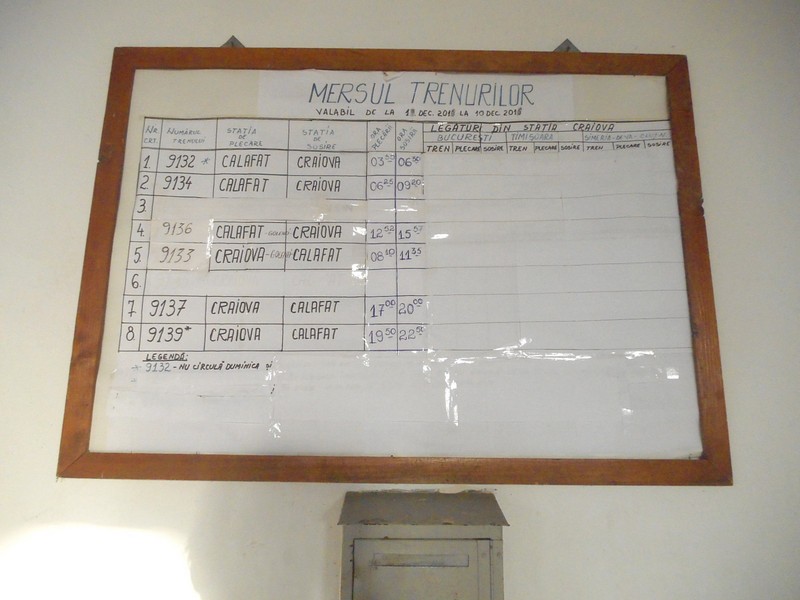 MERSUL TRENURILOR
VALABIL DE LA DEC. LA 10 DEC
NR. CRT. NUMĂRUL TRENULUI STAȚIA DE PLECARE STAȚIA DE SOSIRE ORA PLECĂRII ORA SOSIRE LEGĂTURI DIN STAȚIA CRAIOVA
BUCUREȘTI TIMIȘOARA
TREN PLECARE SOSIRE TREN PLECARE SOSIRE TREN PLECARE SOSIRE
1. 9132 * CALAFAT CRAIOVA 03 06
2. 9134 CALAFAT CRAIOVA 06 25 09 20
3.
4. 9136 CALAFAT CRAIOVA 12 52 15 57
5. 9133 CRAIOVA CALAFAT 08 10 11 35
6.
7. 9137 CRAIOVA CALAFAT 17 00 20 00
8. 9139* CRAIOVA CALAFAT 19 50 22
LEGENDĂ:
* 9132 - NU CIRCULĂ DUMINICA